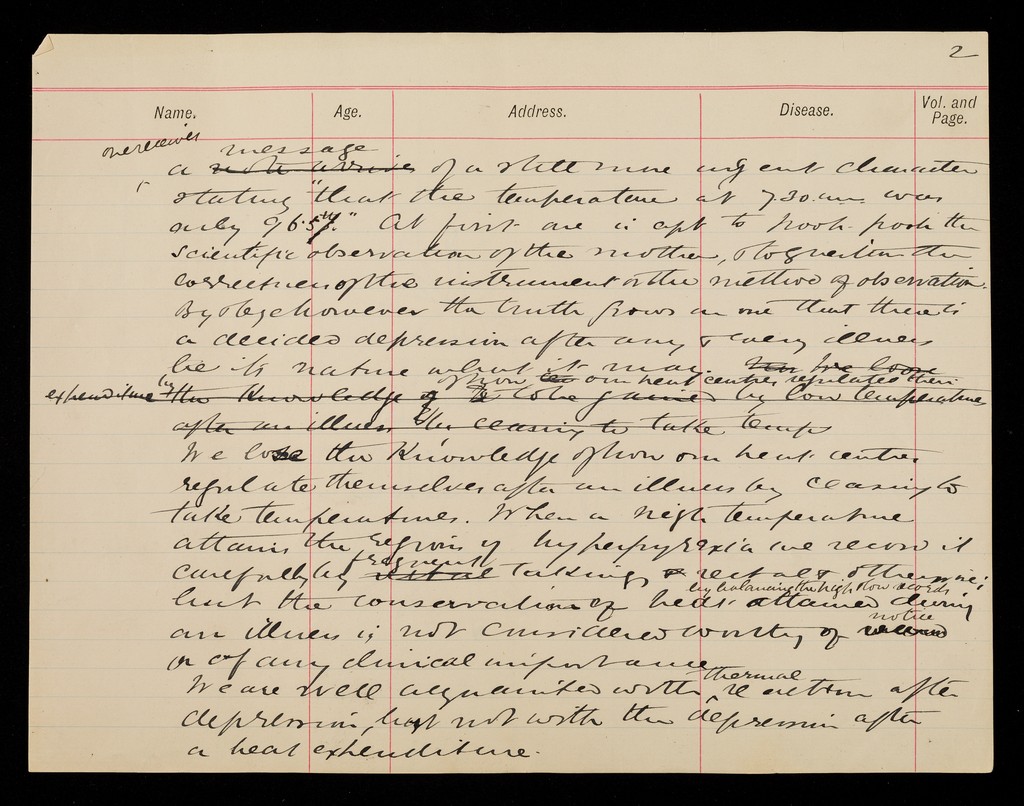 2
Name. Age. Address. Disease. Vol. and Page.
one receives message
a note arrives of a still more urgent character
stating "that the temperature at 7.30. a.m. was
only 96.5." At first one is apt to pooh-pooh the
scientific observation of the mother, & to question the
correctness of the instrument or the method of observation.
By & bye however the truth grows on one that there is
a decided depression after any & every illness
be its nature what it may. We loose
of how our heat centres regulate their
expenditure by the knowledge to be gained by low temperatures
after an illness by ceasing to take temps
We lose the knowledge of how our heat centres
regulate themselves after an illness by ceasing to
take temperatures. When a high temperature
attains the regions of hyperpyrexia we record it
frequent
carefully by rectal takings rectal & otherwise;
by balancing the high & low records
but the conservation of heat attained during
notice
an illness is not considered worthy of
or of any clinical importance
thermal
We are well acquainted with reaction after
depression, but not with the depression after
a heat expenditure.